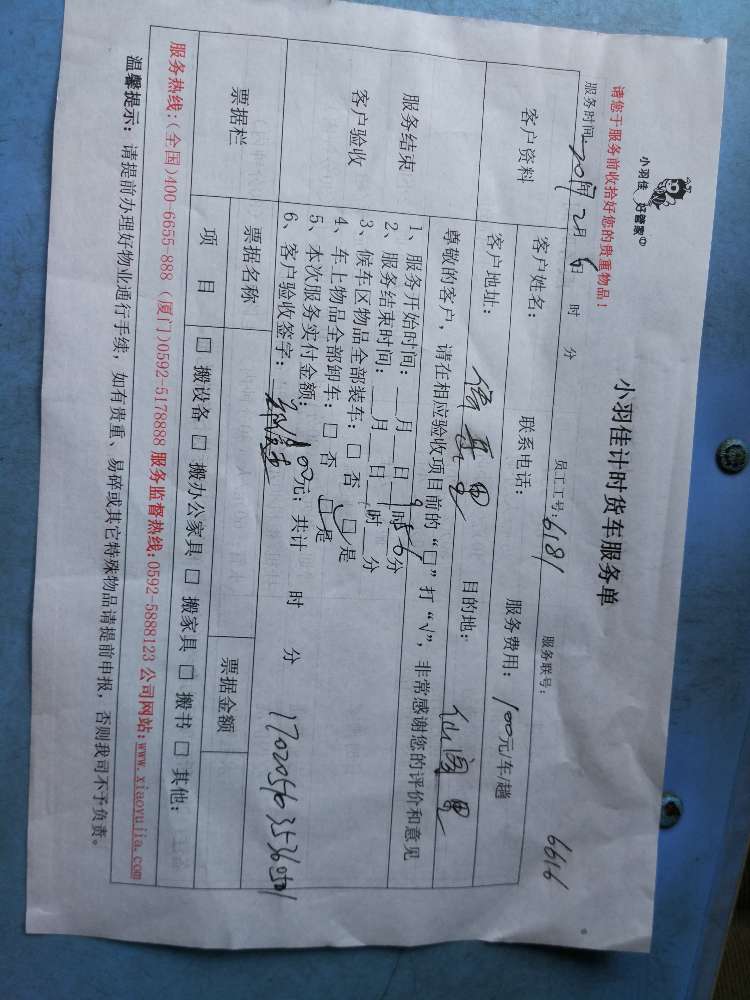 小羽佳 好管家
小羽佳计时货车服务单
请您于服务前收拾好您的贵重物品!
服务时间: 2017年2月6日 时 分 员工工号: 6181 服务联号: 6616
客户资料 客户姓名: 联系电话: 服务费用: 100元/车/趟
客户地址: 目的地: 仙阁里
服务结束
客户验收
尊敬的客户,请在相应验收项目前的“□”打“√”,非常感谢您的评价和意见
1、服务开始时间: 月 日 9时56分
2、服务结束时间: 月 日 时 分
3、候车区物品全部装车: □ 否 □ 是
4、车上物品全部卸车: □ 否 □ 是
5、本次服务实付金额: 100元; 共计 时 分
6、客户验收签字:
票据栏 票据名称 票据金额
项 目 □ 搬设备 □ 搬办公家具 □ 搬家具 □ 搬书 □ 其他:
服务热线:(全国)400-6655-888 (厦门)0592-5178888 服务监督热线:0592-5888123 公司网站:www.xiaoyujia.com
温馨提示: 请提前办理好物业通行手续, 如有贵重、易碎或其它特殊物品请提前申报, 否则我司不予负责。